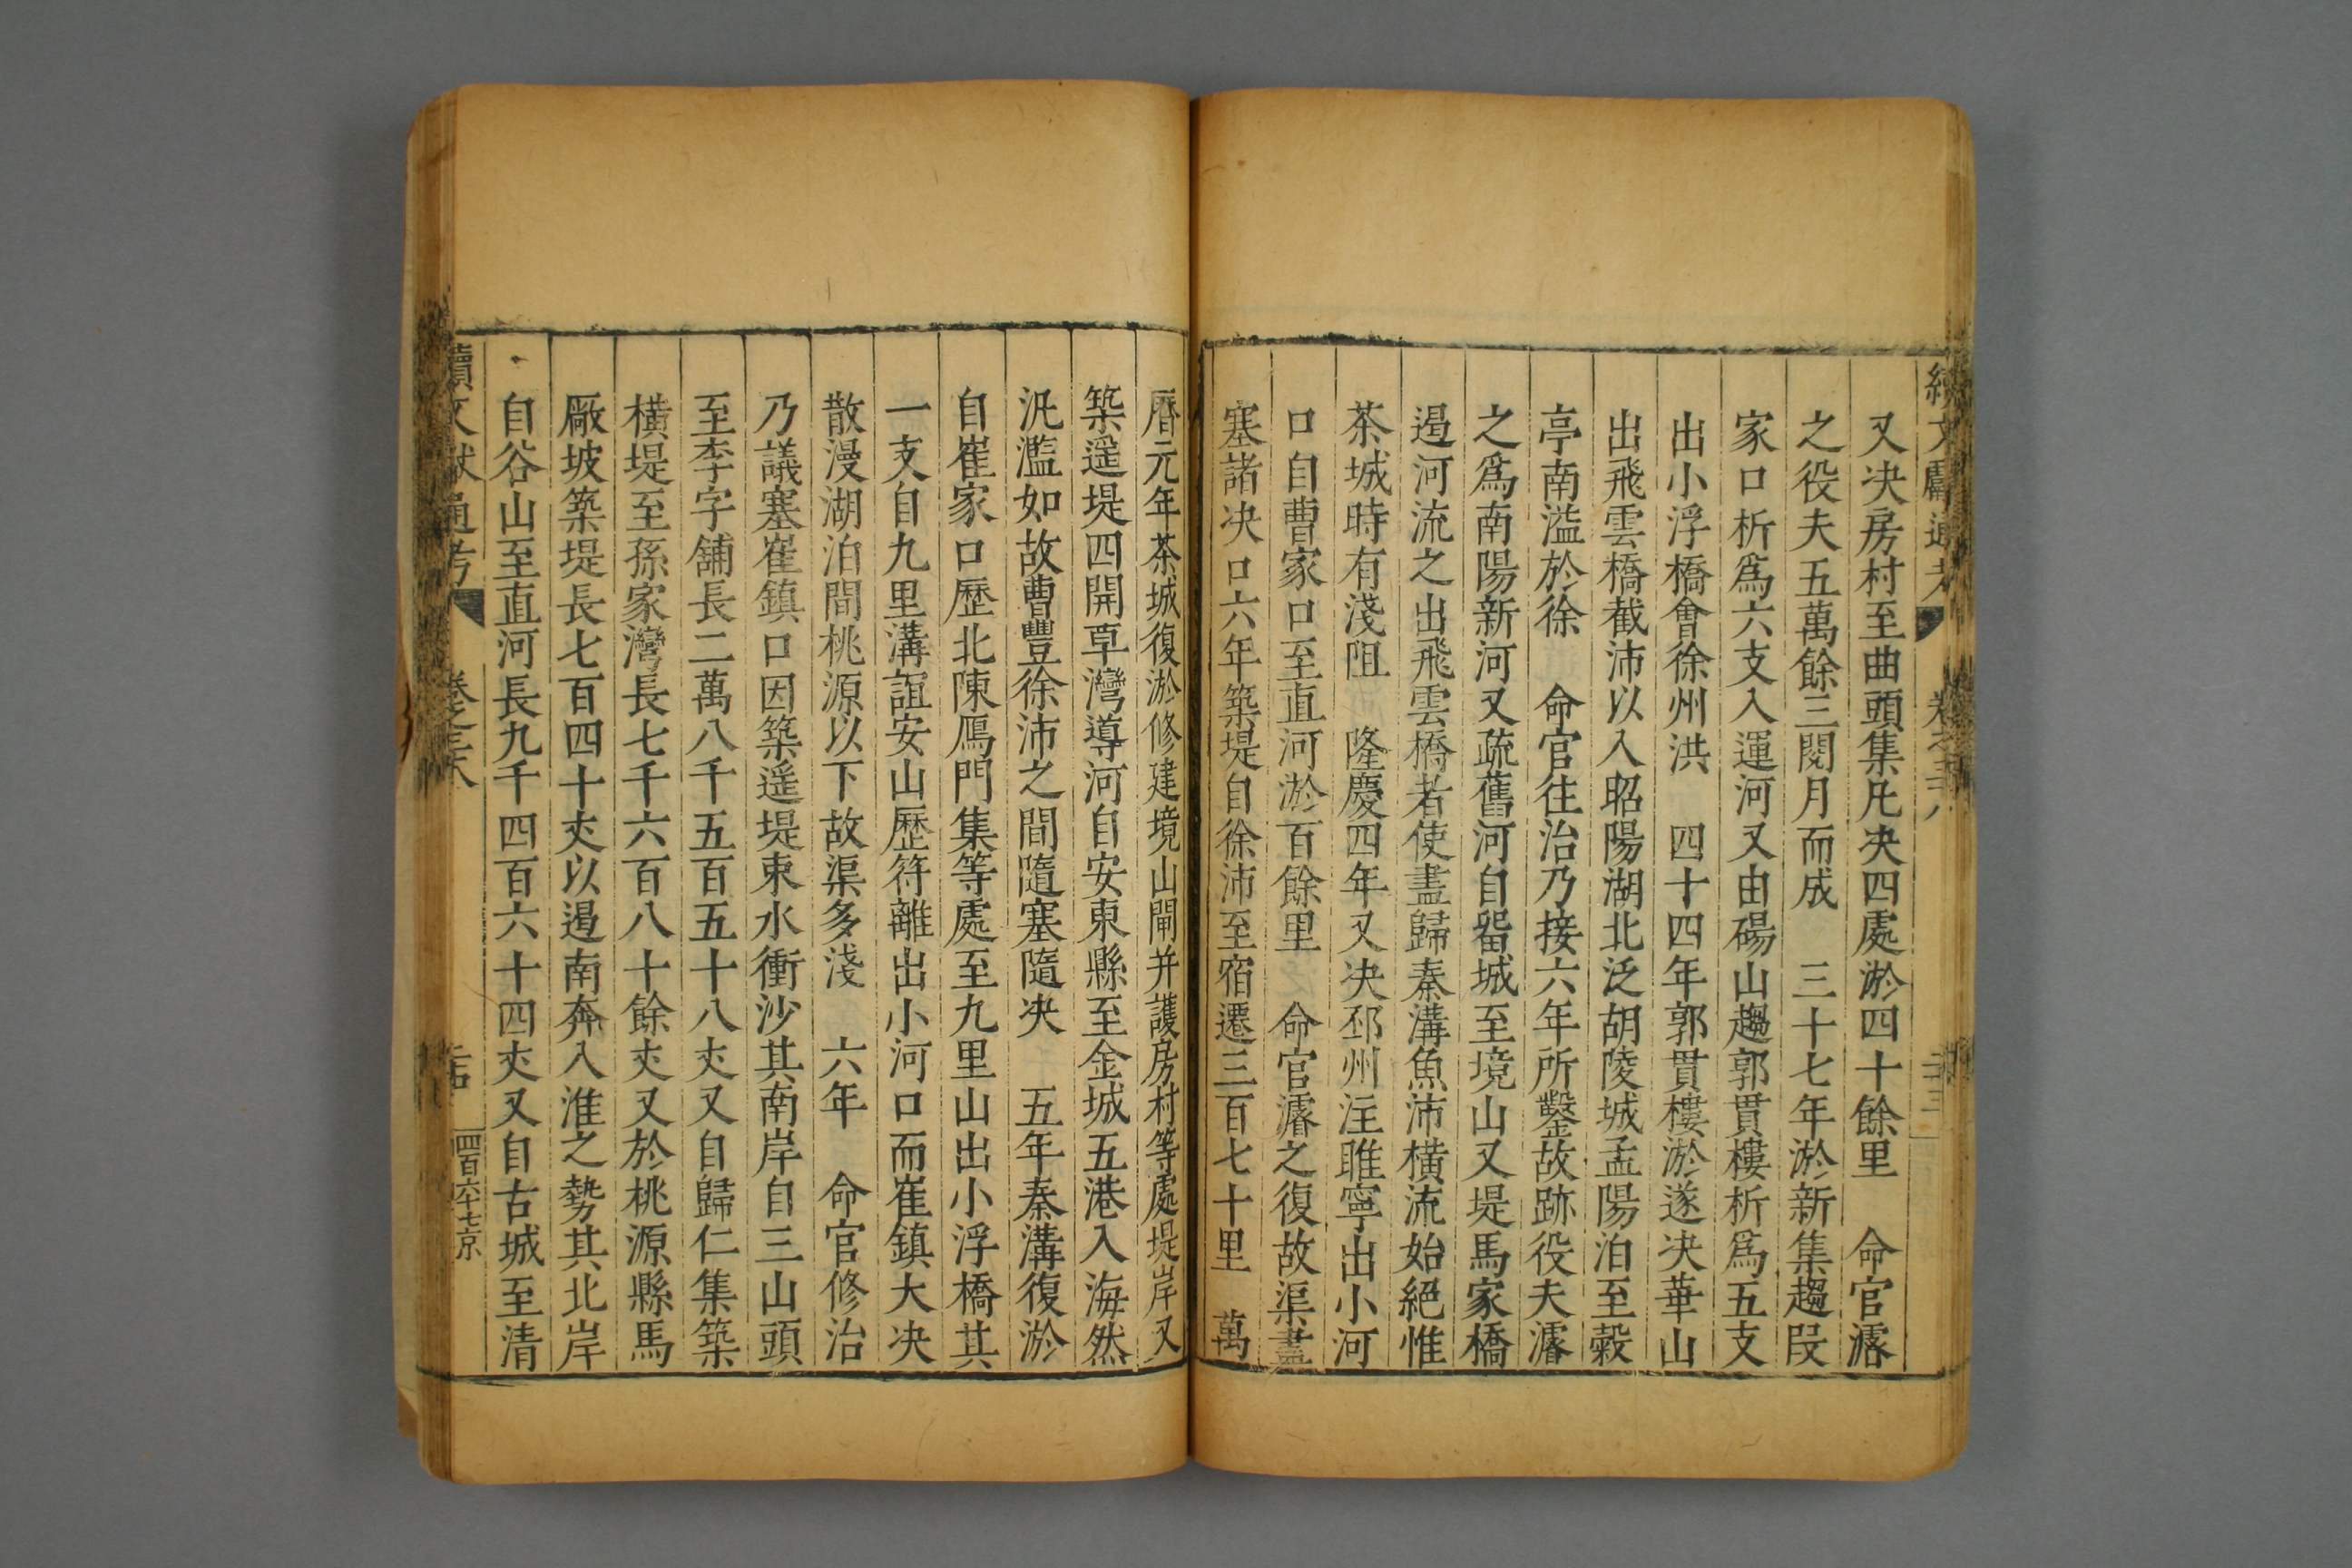 續文獻通考 卷之三十八 二十三
又决房村至曲頭集凡决四處淤四十餘里 命官濬
之役夫五萬餘三閱月而成 三十七年淤新集趨段
家口析爲六支入運河又由碭山趨郭貫樓析爲五支
出小浮橋會徐州洪 四十四年郭貫樓淤遂决華山
出飛雲橋截沛以入昭陽湖北泛胡陵城孟陽泊至穀
亭南溢於徐 命官往治乃接六年所鑿故跡役夫濬
之爲南陽新河又疏舊河自畱城至境山又堤馬家橋
遏河流之出飛雲橋者使盡歸秦溝魚沛橫流始絕惟
茶城時有淺阻 隆慶四年又决邳州洼睢寧出小河
口自曹家口至直河淤百餘里 命官濬之復故渠盡
塞諸决口六年築堤自徐沛至宿遷三百七十里 萬
曆元年茶城復淤修建境山閘并護房村等處堤岸又
築遥堤四開草灣導河自安東縣至金城五港入海然
汎濫如故曹豐徐沛之間隨塞隨决 五年秦溝復淤
自崔家口歷北陳鴈門集等處至九里山出小浮橋其
一支自九里溝誼安山歷符離出小河口而崔鎮大决
散漫湖泊間桃源以下故渠多淺 六年 命官修治
乃議塞崔鎮口因築遥堤束水衝沙其南岸自三山頭
至李字舖長二萬八千五百五十八丈又自歸仁集築
橫堤至孫家灣長七千六百八十餘丈又於桃源縣馬
厰坡築堤長七百四十丈以遏南奔入淮之勢其北岸
自谷山至直河長九千四百六十四丈又自古城至清
續文獻通考 卷之三十八 二十四 四百六十七 京